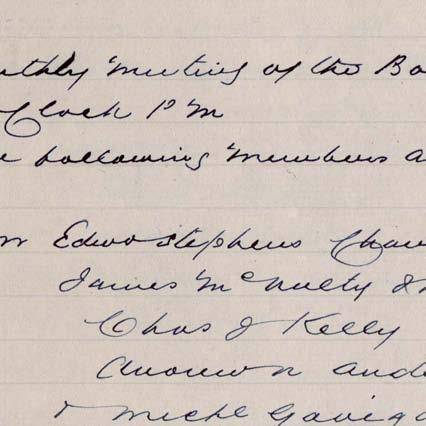 nthly Meeting of the Bo
Clock P M
e following Members a
m Edwd Stephens Chair
James McNulty J
Chas J Kelly
Andrew Ande
& Michl Gaviga